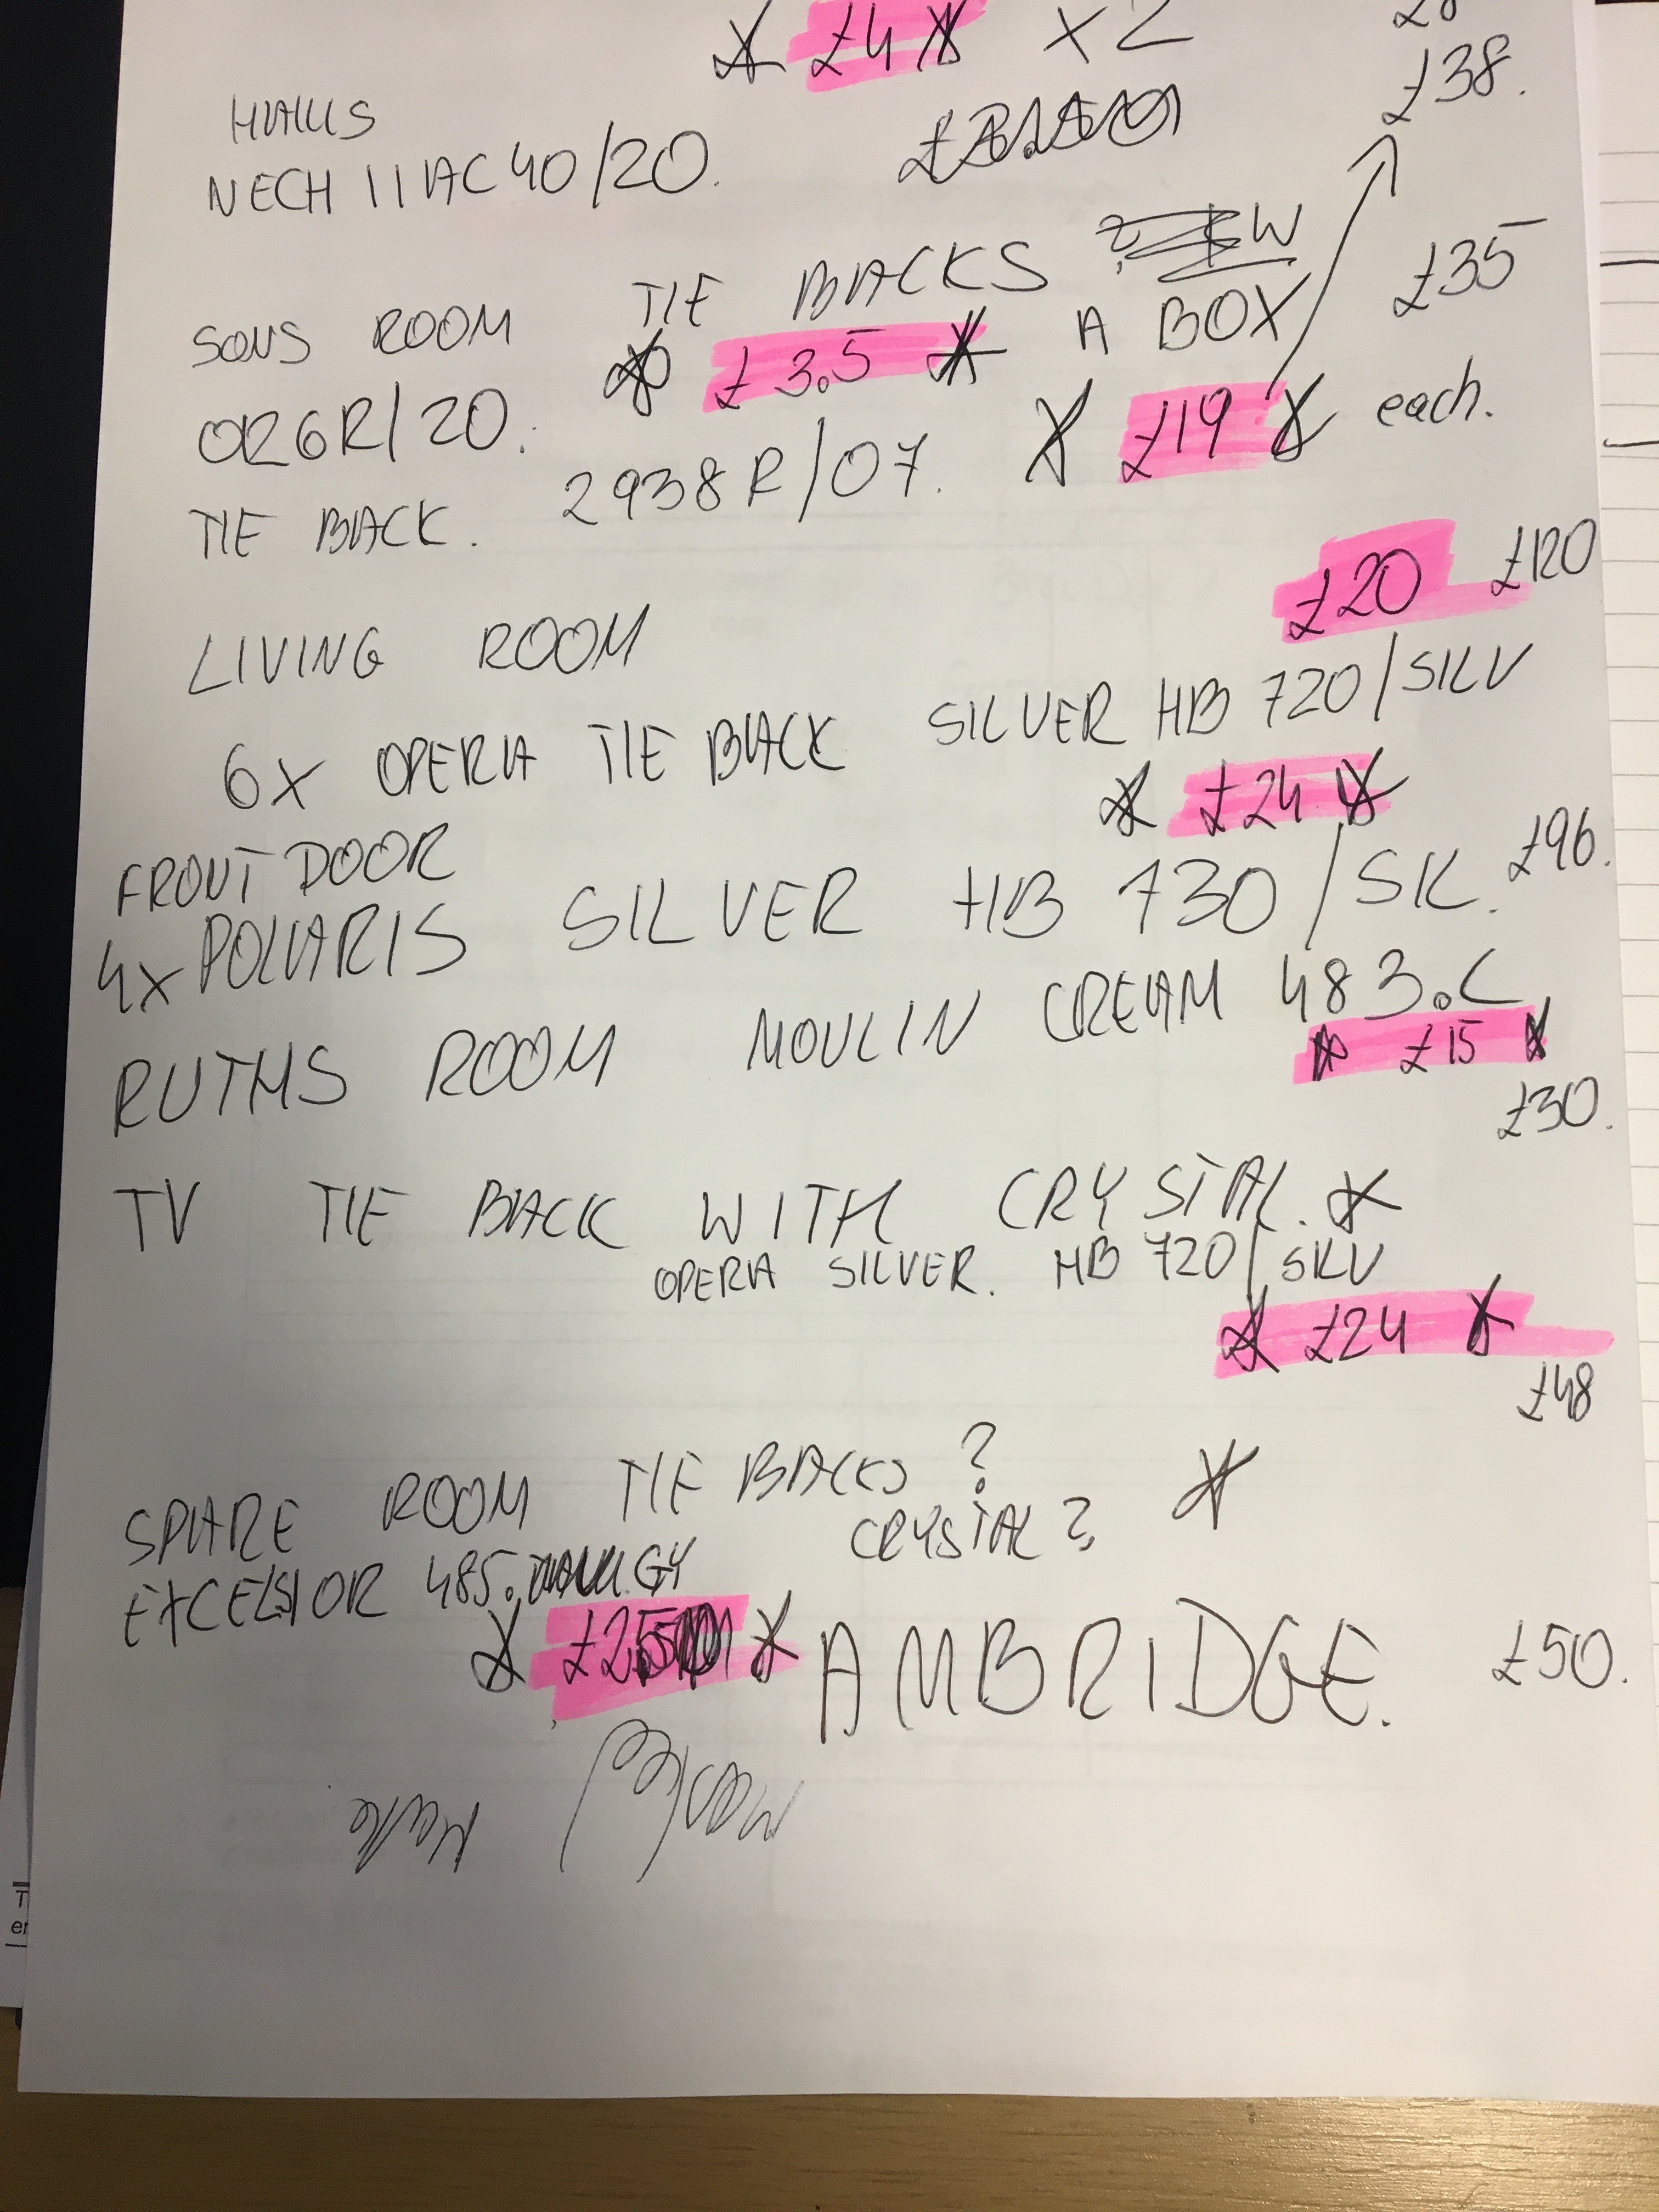 £4 x2
£38.
HALLS
NECH 11AC40/20.
TIE BACKS ?
SONS ROOM £3.5 A BOX £35
OR6R/20. £19 each.
TIE BACK. 2938R/07.
£20 £120
LIVING ROOM
6X OPERA TIE BACK SILVER HB 720/SILV
£24
FRONT DOOR £96.
4X POLARIS SILVER HB 730/SIL.
RUTHS ROOM MOULIN CREAM 483.C
£15
£30.
TV TIE BACK WITH CRYSTAL.
OPERA SILVER. HB 720/SILV
£24
£48
SPARE ROOM TIE BACKS ?
CRYSTAL ?
EXCELSIOR 485. GY
£25 AMBRIDGE. £50.